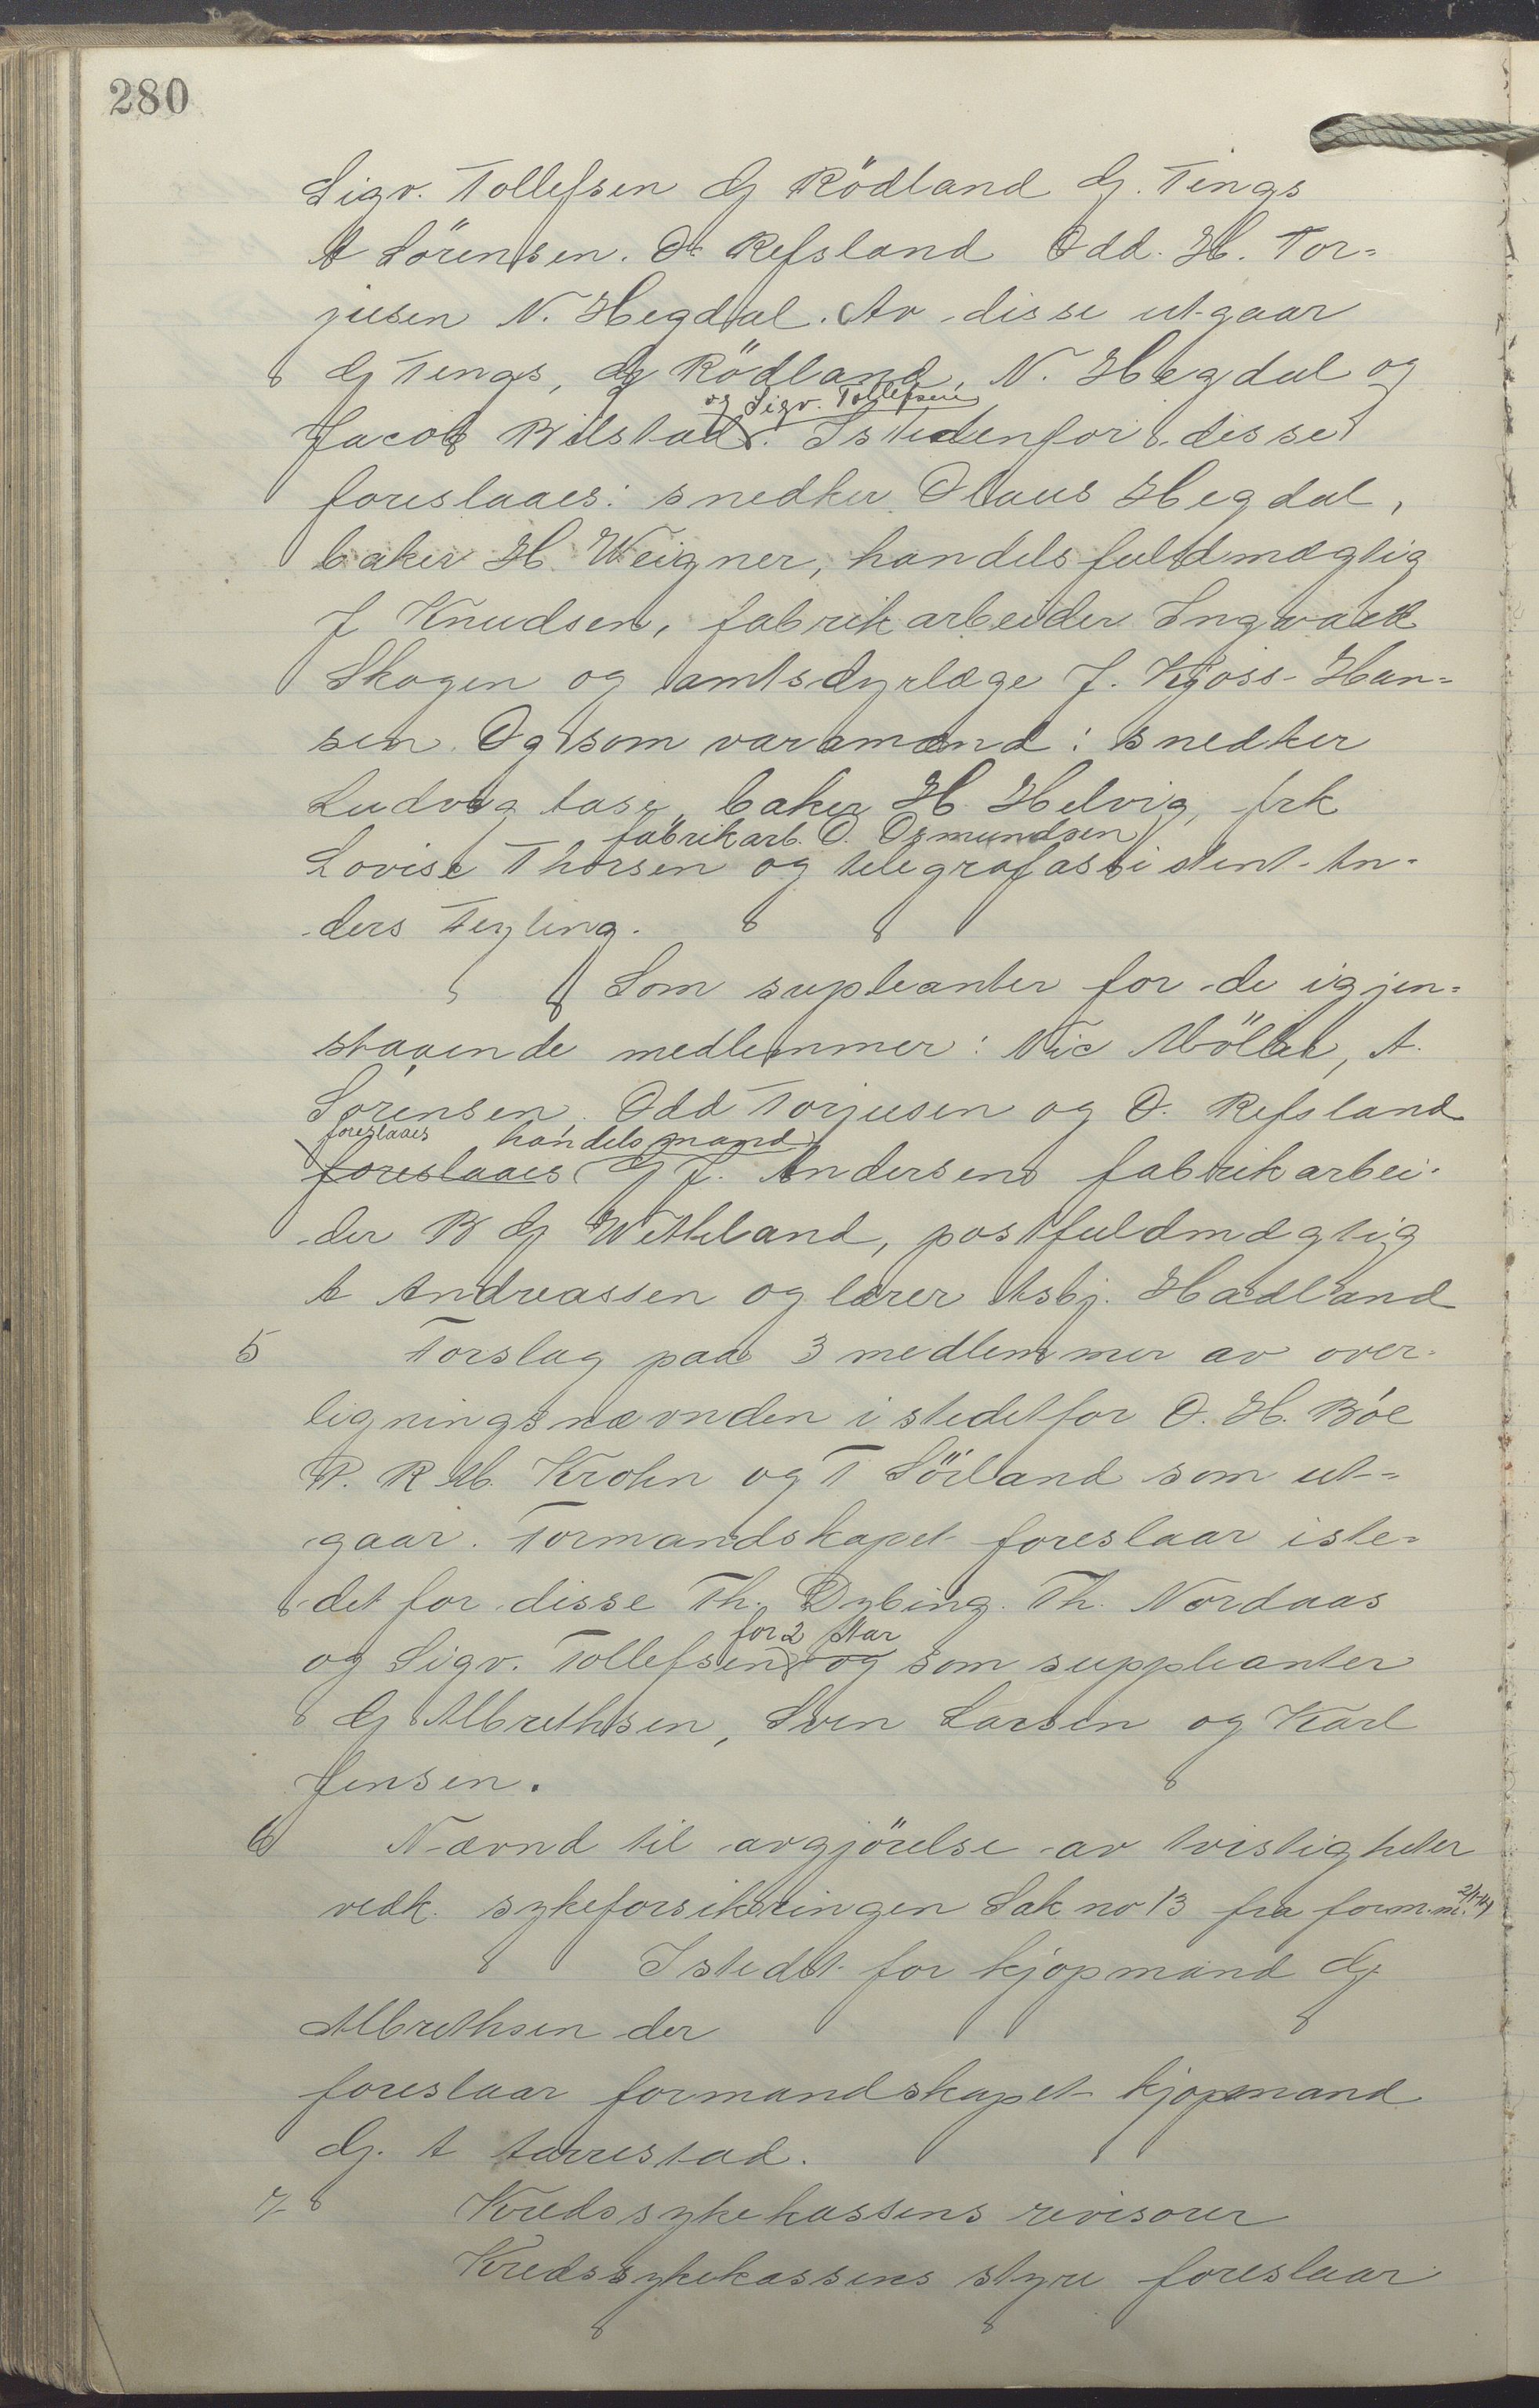 280
Sigv. Tollefsen G Rödland G. Tengs
A Sörensen. O Refsland Odd. H. Tor=
jusen N. Hegdal. Av disse utgaar
G Tengs, G Rödland, N. Hegdal og
og Sigv. Tollefsen
Jacob Bilstad. Istedenfor disse
foreslaaes: snedker Olaus Hegdal,
baker H. Weigner, handelsfuldmægtig
J Knudsen, fabrikarbeider Ingvald
Skogen og amtsdyrlæge J. Kjoss-Han=
sen. Og som varamænd: snedker
Ludvig Aase, baker H. Helvig, frk
fabrikarb. O. Osmundsen
Lovise Thorsen og telegrafassistent An-
ders Teyling.
Som supleanter for de igjen=
staaende medlemmer: Nic Möller, A.
Sørensen. Odd Torjusen og O. Refsland
foreslaaes handelsmand
foreslaaes G J. Andersen, fabrikarbei-
der B G Wetteland, postfuldmægtig
A Andreassen og lærer Asbj. Hadland
5 Forslag paa 3 medlemmer av over-
ligningsnævnden istedetfor O. H. Bóe
P. R M. Krohn og T Sörland som ut-
gaar. Formandskapet foreslaar iste=
det for disse Th. Dybing. Th. Nordaas
for 2 Aar
og Sigv. Tollefsen og som suppleanter
G Albrethsen, Sven Larsen og Karl
Jensen.
6 Nævnd til avgjörelse av tvistigheter
vedk. sykeforsikringen Sak no 13 fra form.m.
Istedet for kjøpmand G
Albrethsen der
foreslaar formandskapet kjøpmand
G. A Aarrestad.
7 Kredssykekassens revisorer
Kredssykekassens styre foreslaar